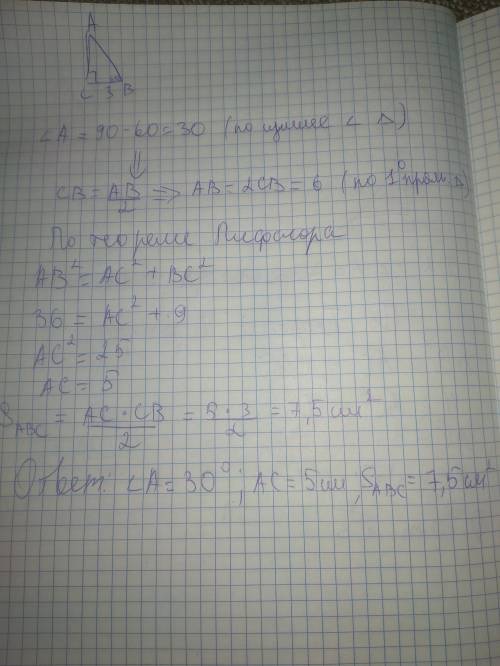 A
C 3 B
∠A = 90-60=30 (по сумме ∠ Δ)
⇓
CB = AB/2 ⇒ AB = 2CB = 6 (по 1° прям. Δ)
По теореме Пифагора
AB² = AC² + BC²
36 = AC² + 9
AC² = 25
AC = 5
S_ABC = AC·CB/2 = 5·3/2 = 7,5 см²
Ответ: ∠A = 30°; AC = 5см, S_ABC = 7,5 см²